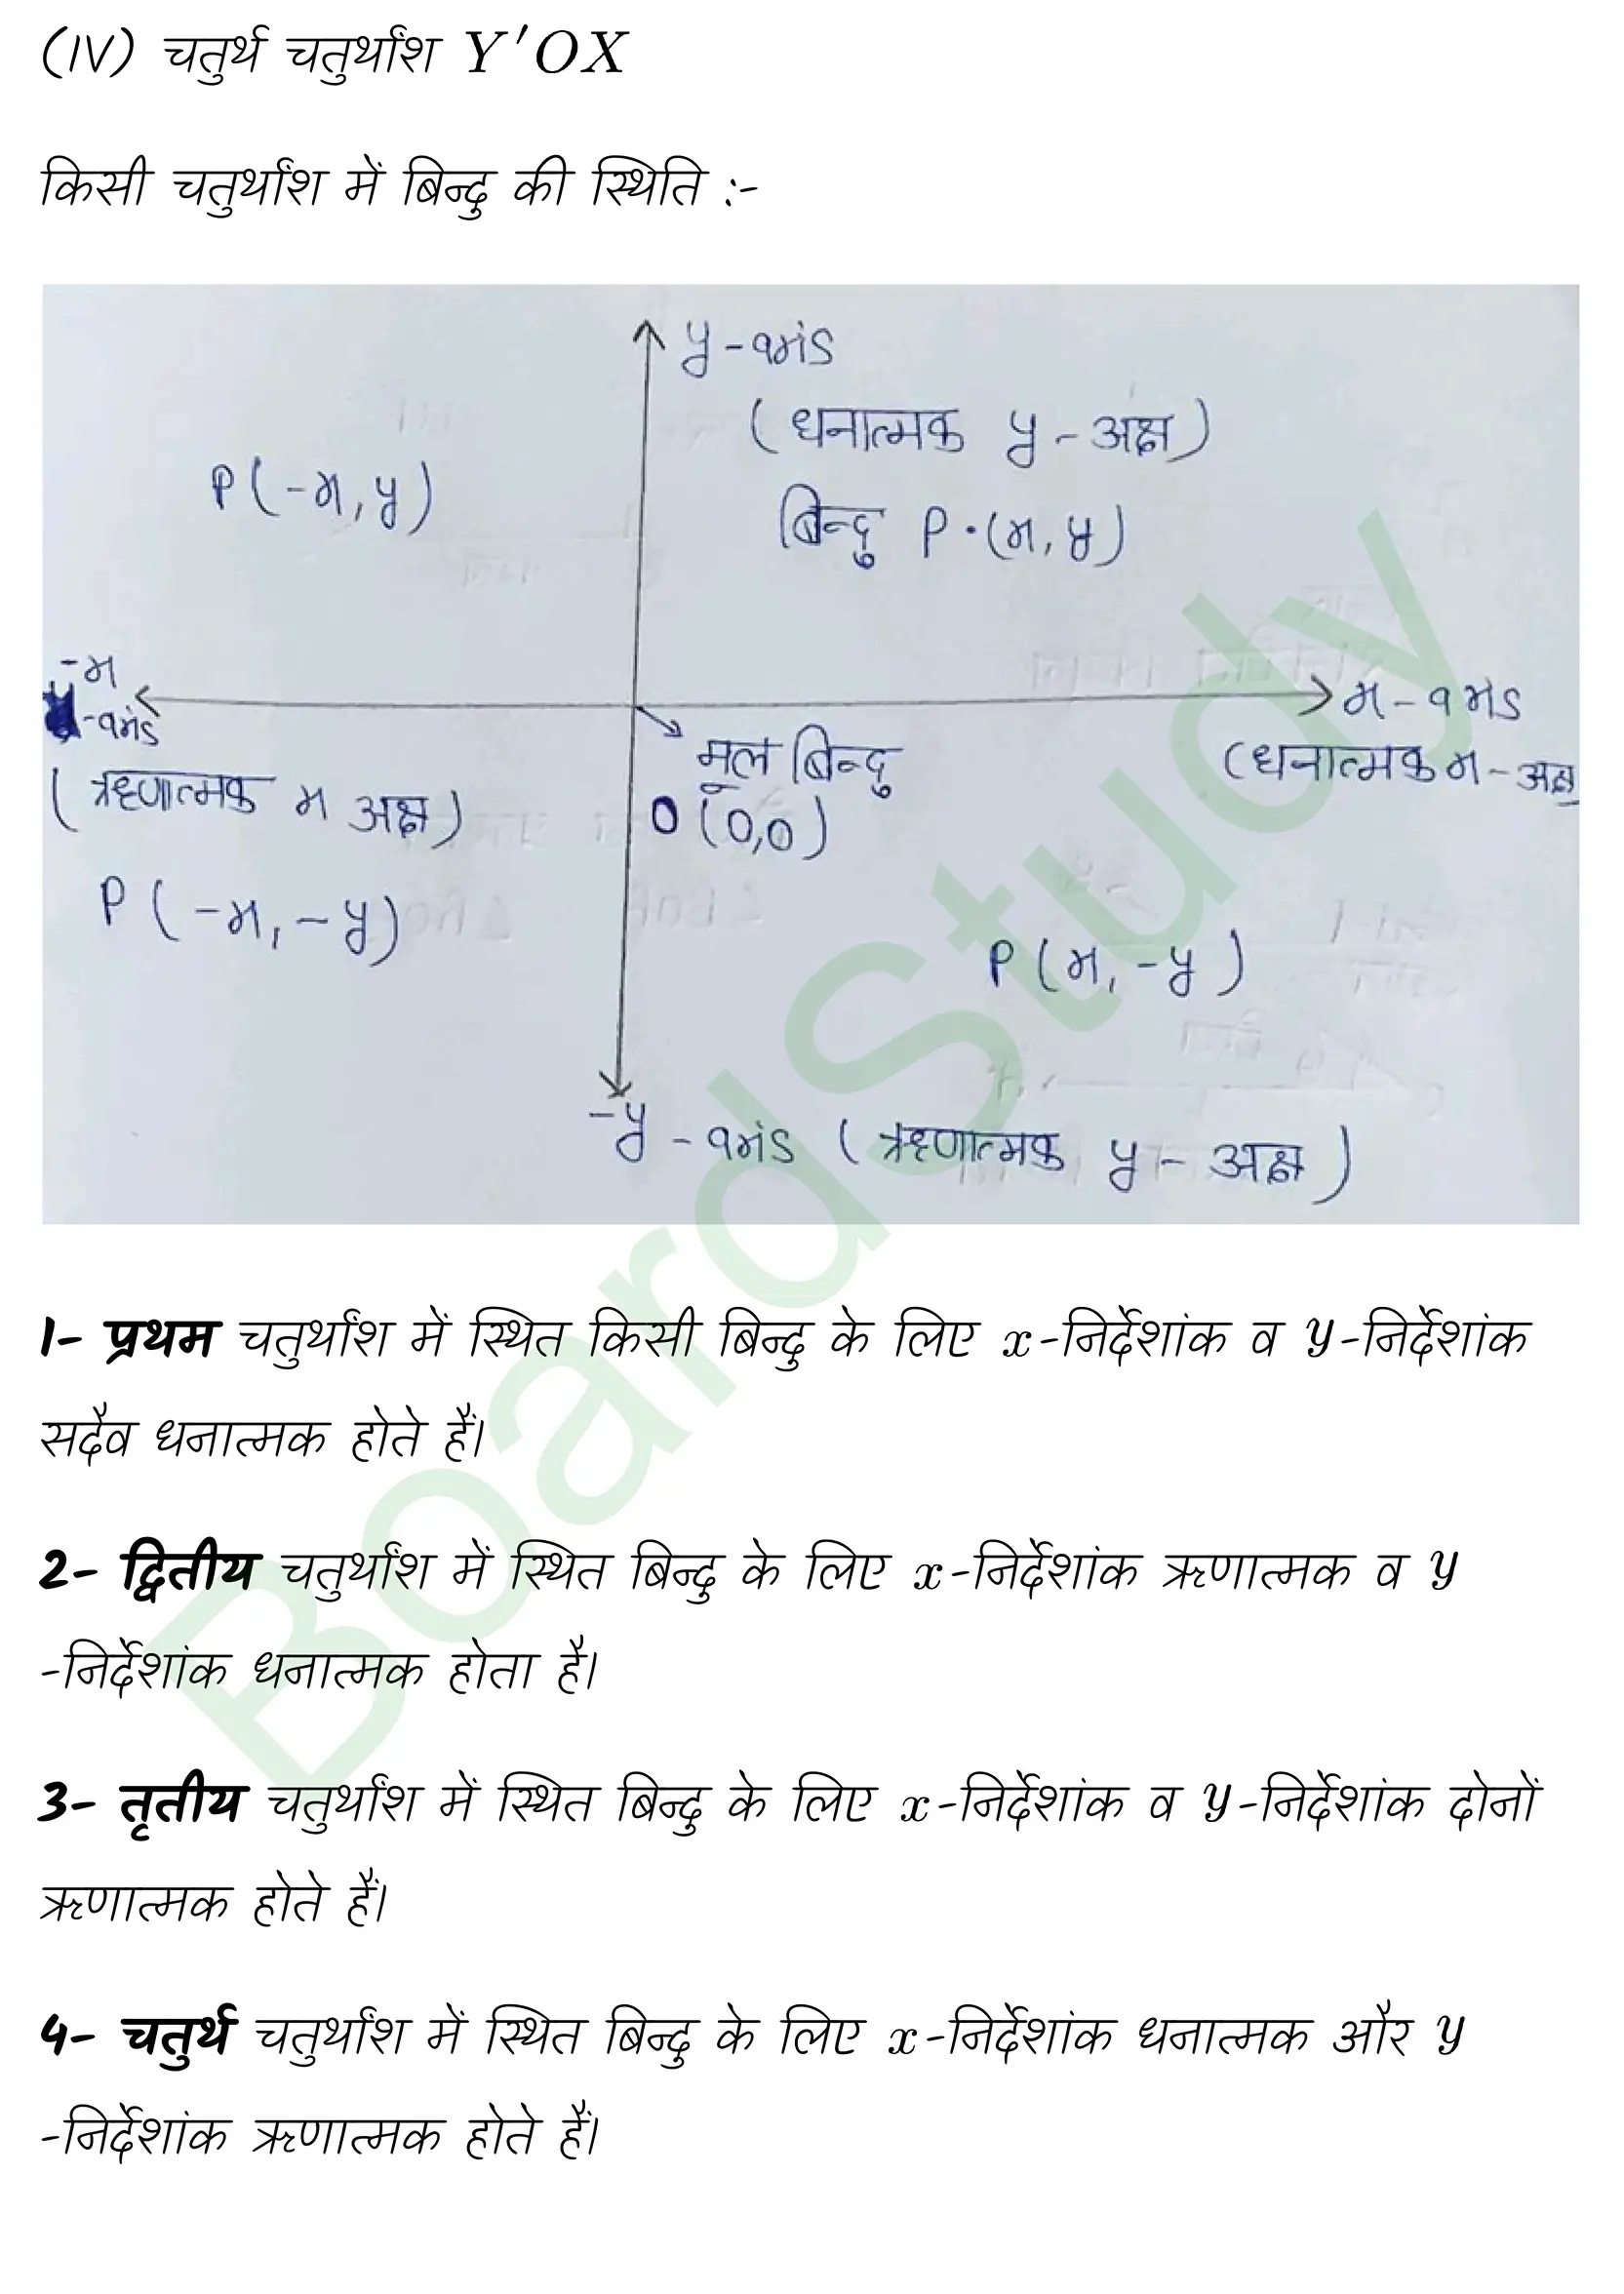 (IV) चतुर्थ चतुर्थांश Y'OX
किसी चतुर्थांश में बिन्दु की स्थिति :-
y-axis
(धनात्मक y-अक्ष)
P(-x,y)
बिन्दु P.(x,y)
-x
-axis
x-axis
(ऋणात्मक x अक्ष)
मूल बिन्दु
(धनात्मक x-अक्ष
O(0,0)
P(-x,-y)
P(x,-y)
-y-axis (ऋणात्मक y-अक्ष)
BoardStudy
1- प्रथम चतुर्थांश में स्थित किसी बिन्दु के लिए x-निर्देशांक व y-निर्देशांक
सदैव धनात्मक होते हैं।
2- द्वितीय चतुर्थांश में स्थित बिन्दु के लिए x-निर्देशांक ऋणात्मक व y
-निर्देशांक धनात्मक होता है।
3- तृतीय चतुर्थांश में स्थित बिन्दु के लिए x-निर्देशांक व y-निर्देशांक दोनों
ऋणात्मक होते हैं।
4- चतुर्थ चतुर्थांश में स्थित बिन्दु के लिए x-निर्देशांक धनात्मक और y
-निर्देशांक ऋणात्मक होते हैं।